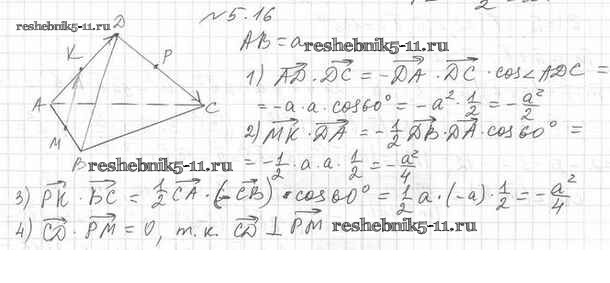 №5.16
reshebnik5-11.ru
D
K
P
A
C
M
B
AB = a
reshebnik5-11.ru
1) AD⃗ · DC⃗ = -DA⃗ · DC⃗ · cos∠ADC =
= -a · a · cos60° = -a² · 1/2 = -a²/2
2) MK⃗ · DA⃗ = -1/2 DB⃗ · DA⃗ · cos60° =
= -1/2 · a · a · 1/2 = -a²/4
reshebnik5-11.ru
3) PK⃗ · BC⃗ = 1/2 CA⃗ · (-CB⃗) · cos60° = 1/2 a · (-a) · 1/2 = -a²/4
4) CD⃗ · PM⃗ = 0, т.к. CD⃗ ⊥ PM⃗
reshebnik5-11.ru